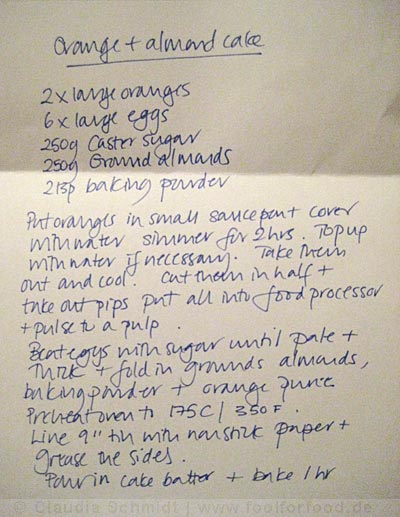 Orange + almond cake
2 x large oranges
6 x large eggs
250g Caster sugar
250g Ground almonds
2 tsp baking powder
Put oranges in small saucepan + cover
with water simmer for 2 hrs. Top up
with water if necessary. Take them
out and cool. Cut them in half +
take out pips put all into food processor
+ pulse to a pulp.
Beat eggs with sugar until pale +
thick + fold in grounds almonds,
baking powder + orange puree
Preheat oven to 175C / 350F.
Line 9" tin with nonstick paper +
grease the sides.
Pour in cake batter + bake 1 hr
© Claudia Schmidt | www.foolforfood.de